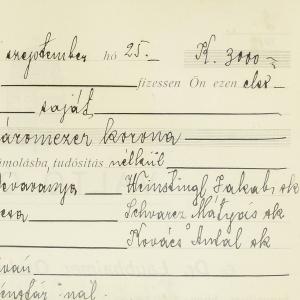 szeptember hó 25.– K. 3000
fizessen Ön ezen első
saját
áromezer korona
ámolásba, tudósítás nélkül
évaványa Weinstingl Jakab s.k
csa Schwarcz Mátyás sk
Kovács Antal sk
iván
nál.